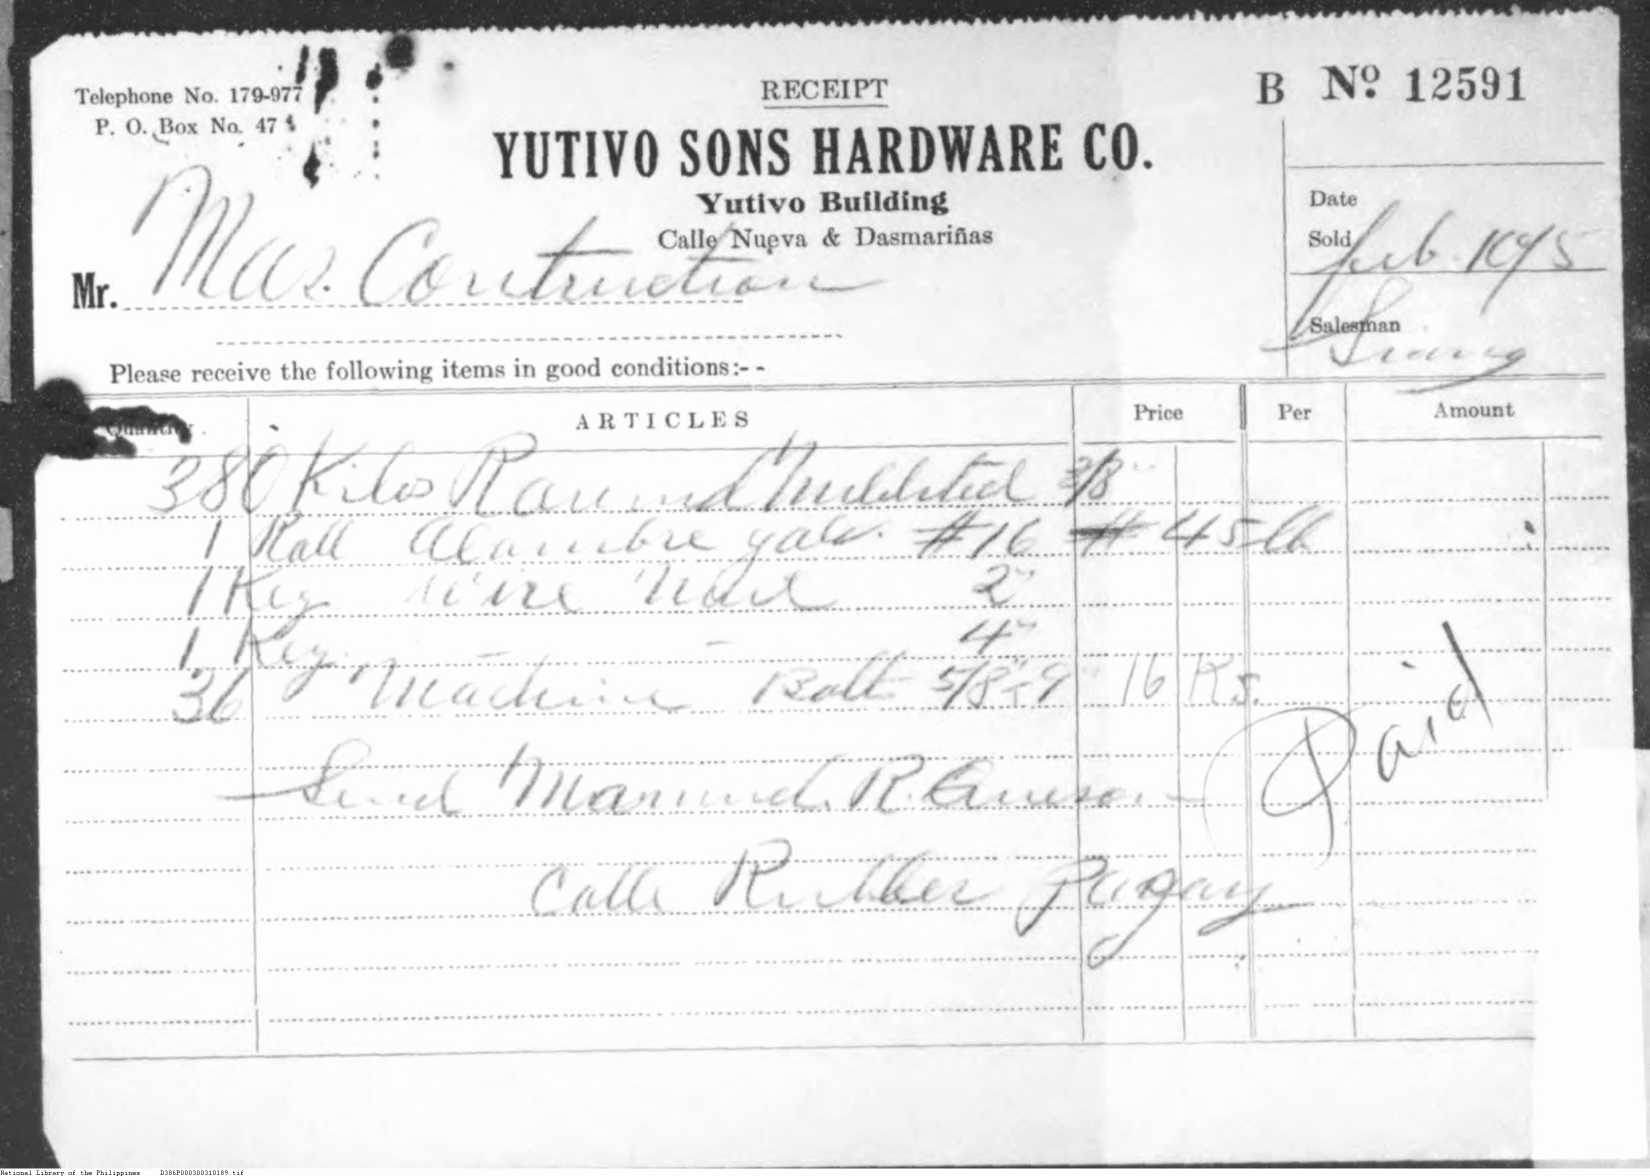 Telephone No. 179-977
P. O. Box No. 47
RECEIPT
B Nº 12591
YUTIVO SONS HARDWARE CO.
Yutivo Building
Calle Nueva & Dasmariñas
Date
Sold
Mr. Mas. Contruction
Salesman
Please receive the following items in good conditions:--
Quantity ARTICLES Price Per Amount
380 Kilos Round 3/8"
1 Roll Alambre galv. #16 # 45 lb
1 Keg Wire Nail 2"
1 Keg " " 4"
36 Machine Bolt 5/8" 9" 16 Ks.
Paid
Send Manuel R.
Calle
National Library of the Philippines D386P000300310189.tif